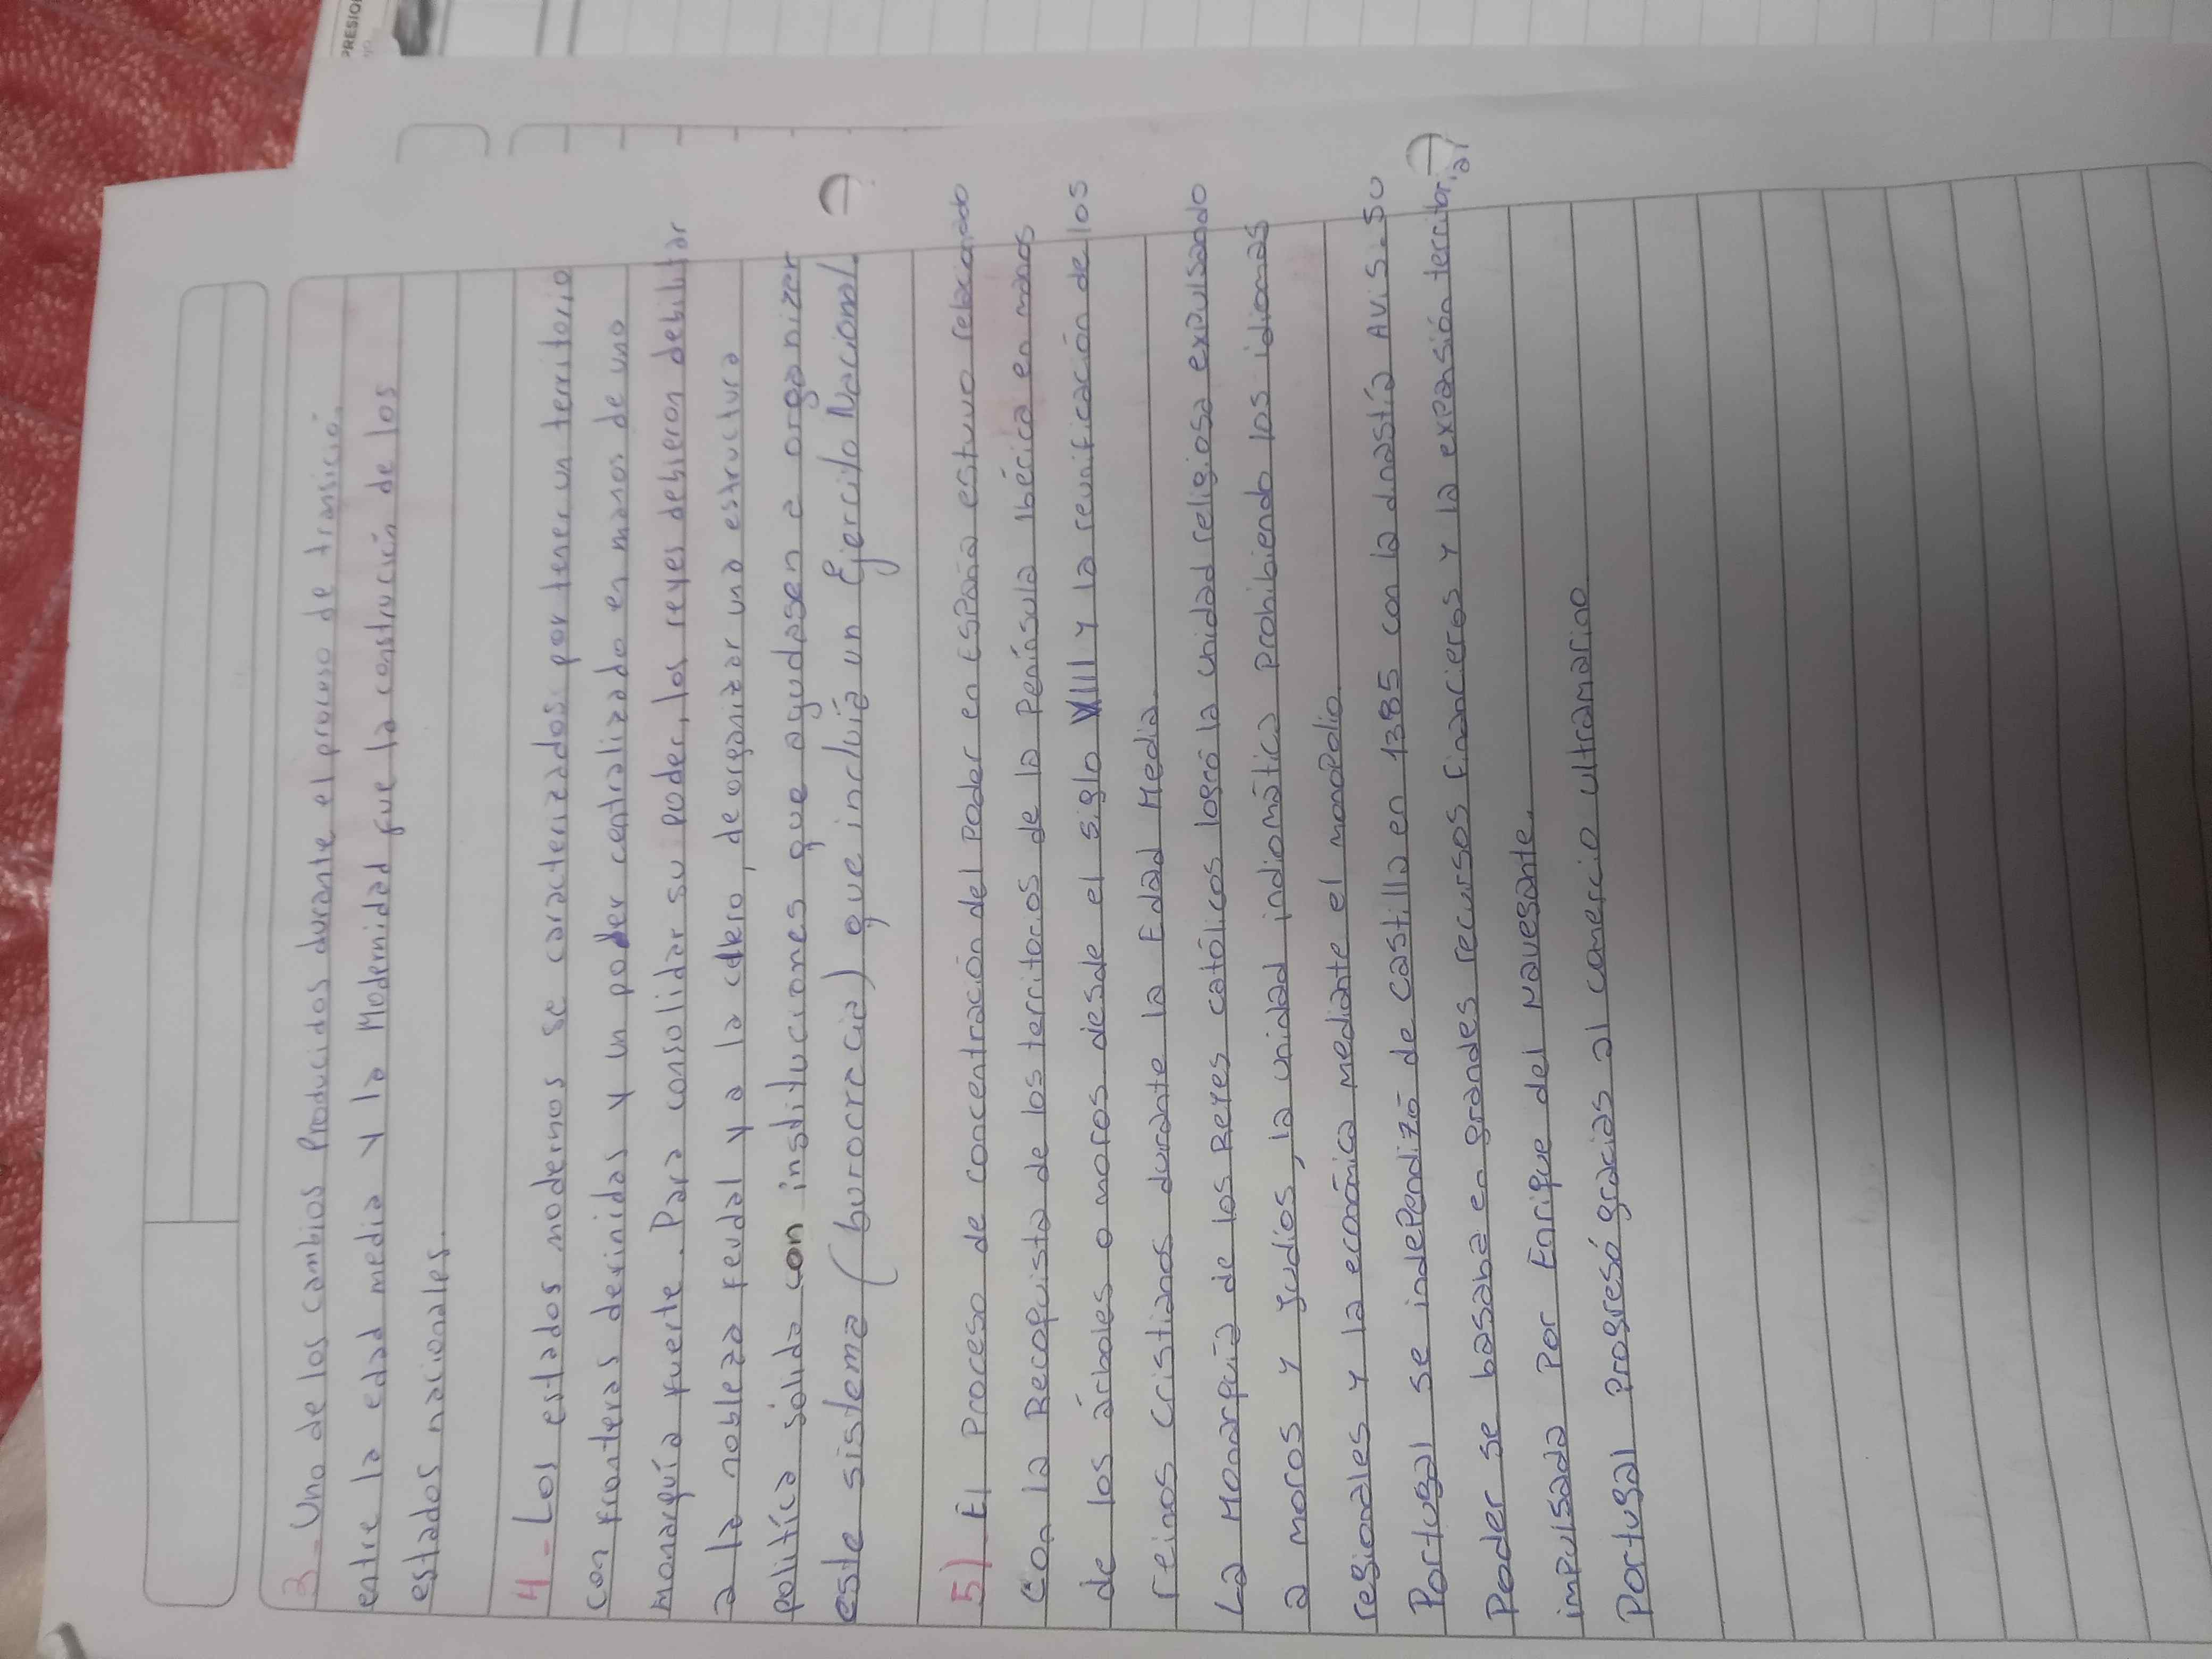 PRESIO
3- Uno de los cambios Producidos durante el proceso de transició.
entre la edad media y la Modernidad fue la construcción de los
estados nacionales.
4- Los estados modernos se caracterizados por tener un territorio
con fronteras derinidas y un poder centralizado en manos de uno
monarquía fuerte. Para consolidar su poder, los reyes debieron debilitar
a la nobleza feudal y a la clero, de organizar una estructura
política sólida con instituciones que ayudasen a organizar
este sistema (burocracia) que incluía un Ejercito Nacional.
5) El Proceso de concentración del Poder en España estuvo relacionado
Con la Reconquista de los territorios de la Península Ibérica en manos
de los árboles o moros desde el siglo VIII y la reunificación de los
reinos Cristianos durante la Edad Media.
La Monarquía de los Reyes católicos logró la unidad religiosa expulsando
a moros y judíos, la unidad indiomática Prohibiendo los idiomas
regionales y la económica mediante el monopolio
Portugal se indePendizó de Castilla en 1385 con la dinastía AVIS. SU
Poder se basaba en grandes recursos Financieros y la expansión territorial
impulsada Por Enrique del Navegante.
Portugal Progresó gracias al comercio ultramarino